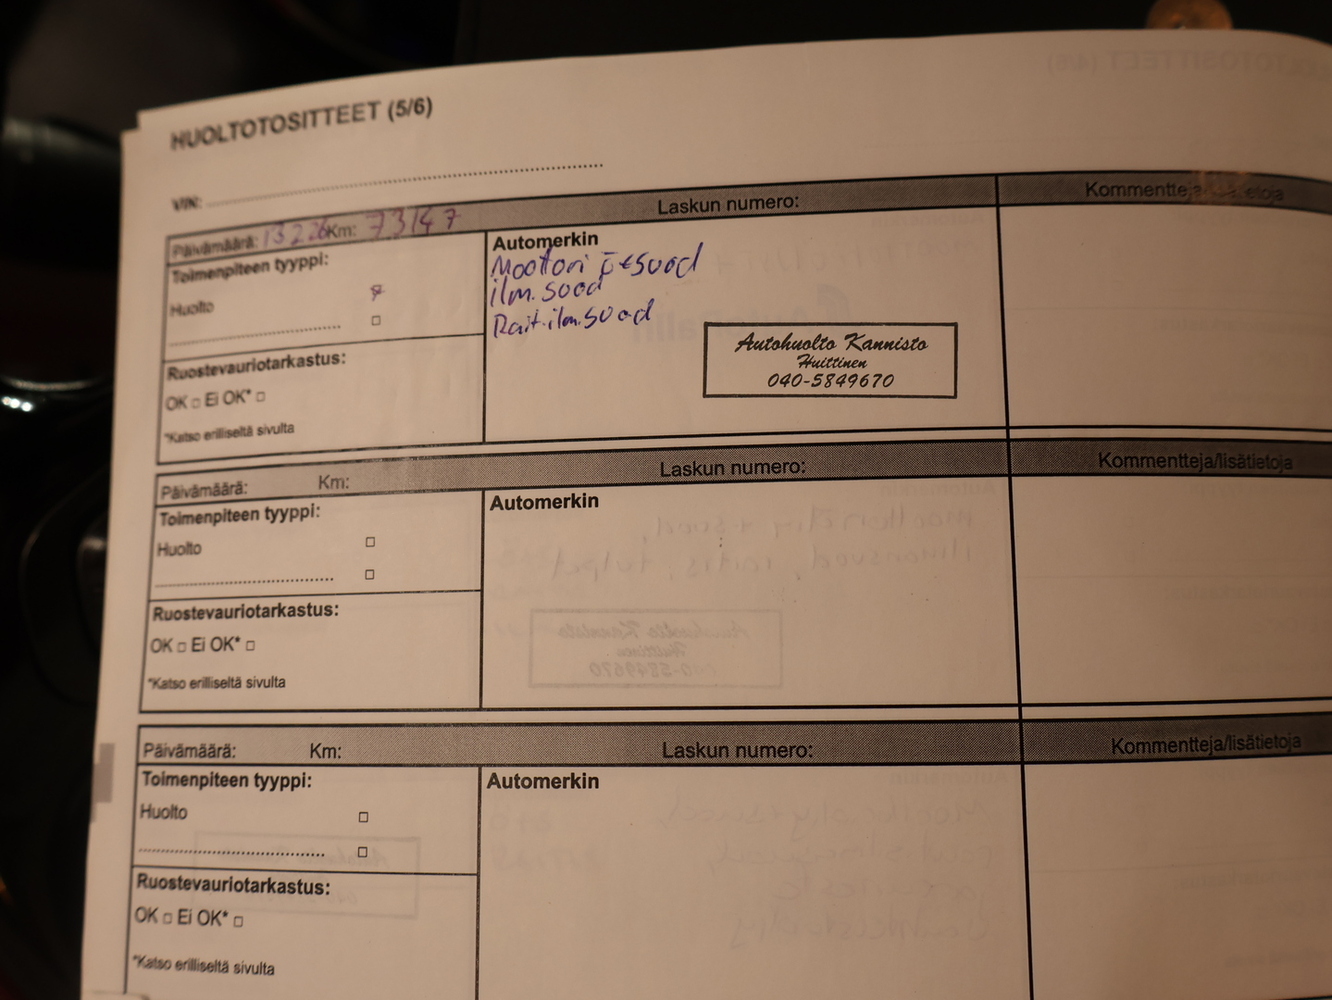 HUOLTOTOSITTEET (5/6)
VIN:
Päivämäärä: 13226 Km: 73147 Laskun numero: Kommentteja/lisätietoja
Toimenpiteen tyyppi:
Huolto
Ruostevauriotarkastus:
OK □ Ei OK* □
*Katso erilliseltä sivulta
Automerkin
Moottori ö+suod
ilm.suod
Rait.ilm.suod
Autohuolto Kannisto
Huittinen
040-5849670
Päivämäärä: Km: Laskun numero: Kommentteja/lisätietoja
Toimenpiteen tyyppi:
Huolto □
□
Ruostevauriotarkastus:
OK □ Ei OK* □
*Katso erilliseltä sivulta
Automerkin
Päivämäärä: Km: Laskun numero: Kommentteja/lisätietoja
Toimenpiteen tyyppi:
Huolto □
□
Ruostevauriotarkastus:
OK □ Ei OK* □
*Katso erilliseltä sivulta
Automerkin